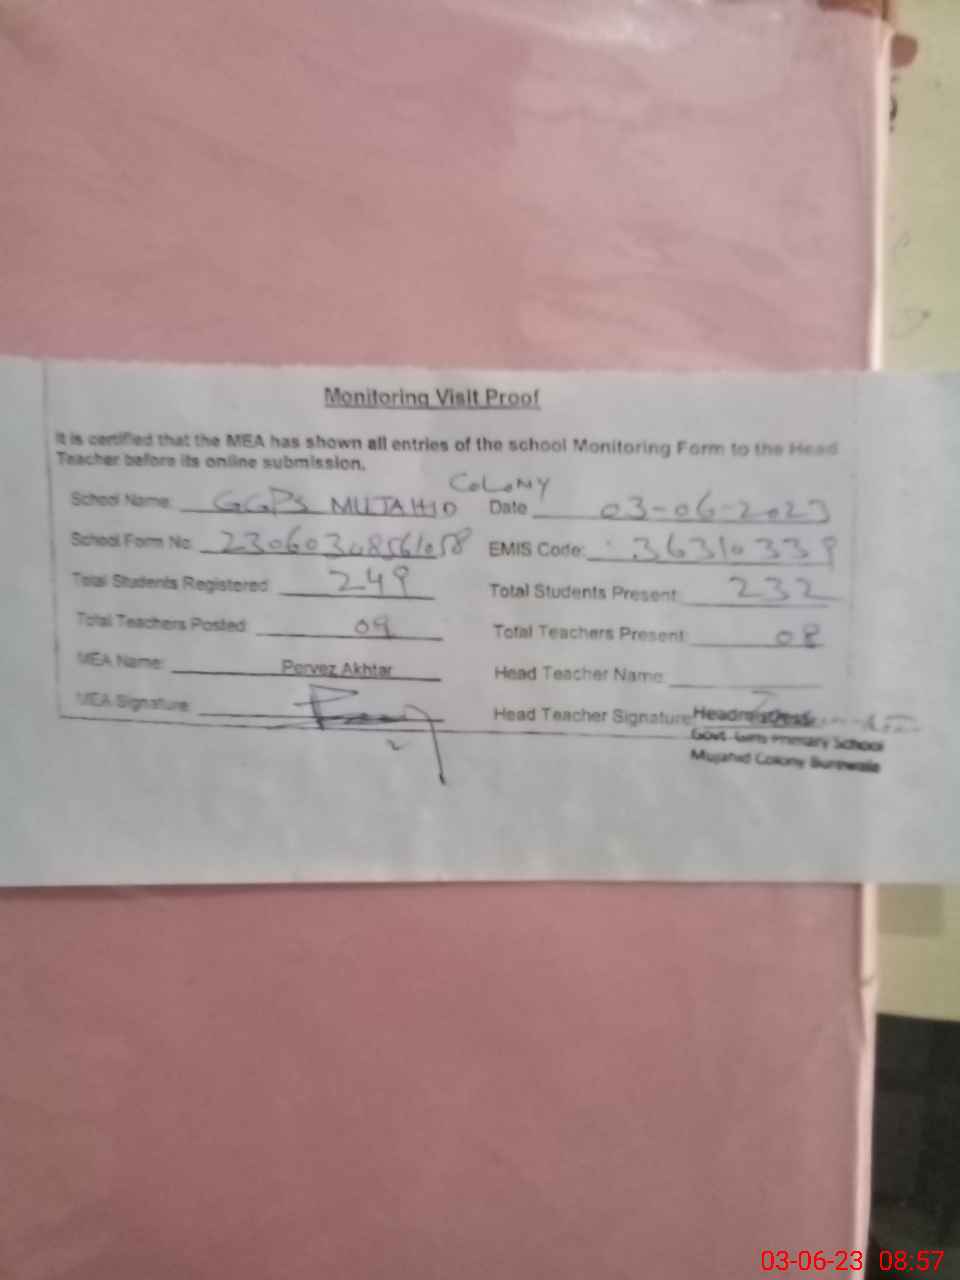 Monitoring Visit Proof
It is certified that the MEA has shown all entries of the school Monitoring Form to the Head
Teacher before its online submission.
School Name: GGPS MUJAHID COLONY Date 03-06-2023
School Form No: EMIS Code: 36310339
Total Students Registered: 249 Total Students Present: 232
Total Teachers Posted: 09 Total Teachers Present: 08
MEA Name: Pervez Akhtar Head Teacher Name:
MEA Signature: Head Teacher Signature Headmistress
Govt. Girls Primary School
Mujahid Colony Burewala
03-06-23 08:57